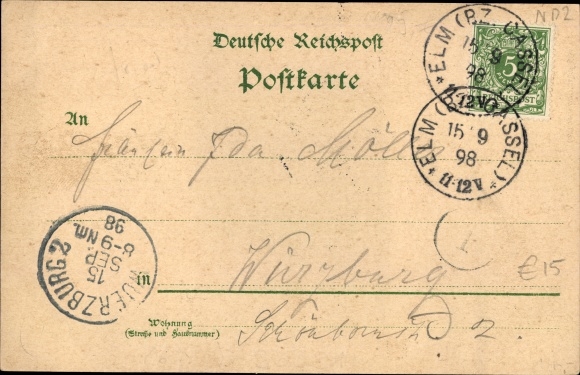 ND2
Deutsche Reichspost
Postkarte
ELM (BZ. CASSEL)
15 9
98
11-12V
5
REICHSPOST
An
Fräulein Ida Möller
ELM (BZ. CASSEL)
15 9
98
11-12V
WUERZBURG 2
15
SEP.
8-9 Nm.
98
in Würzburg
€15
Wohnung
(Straße und Hausnummer)
Schönbornstr 2.